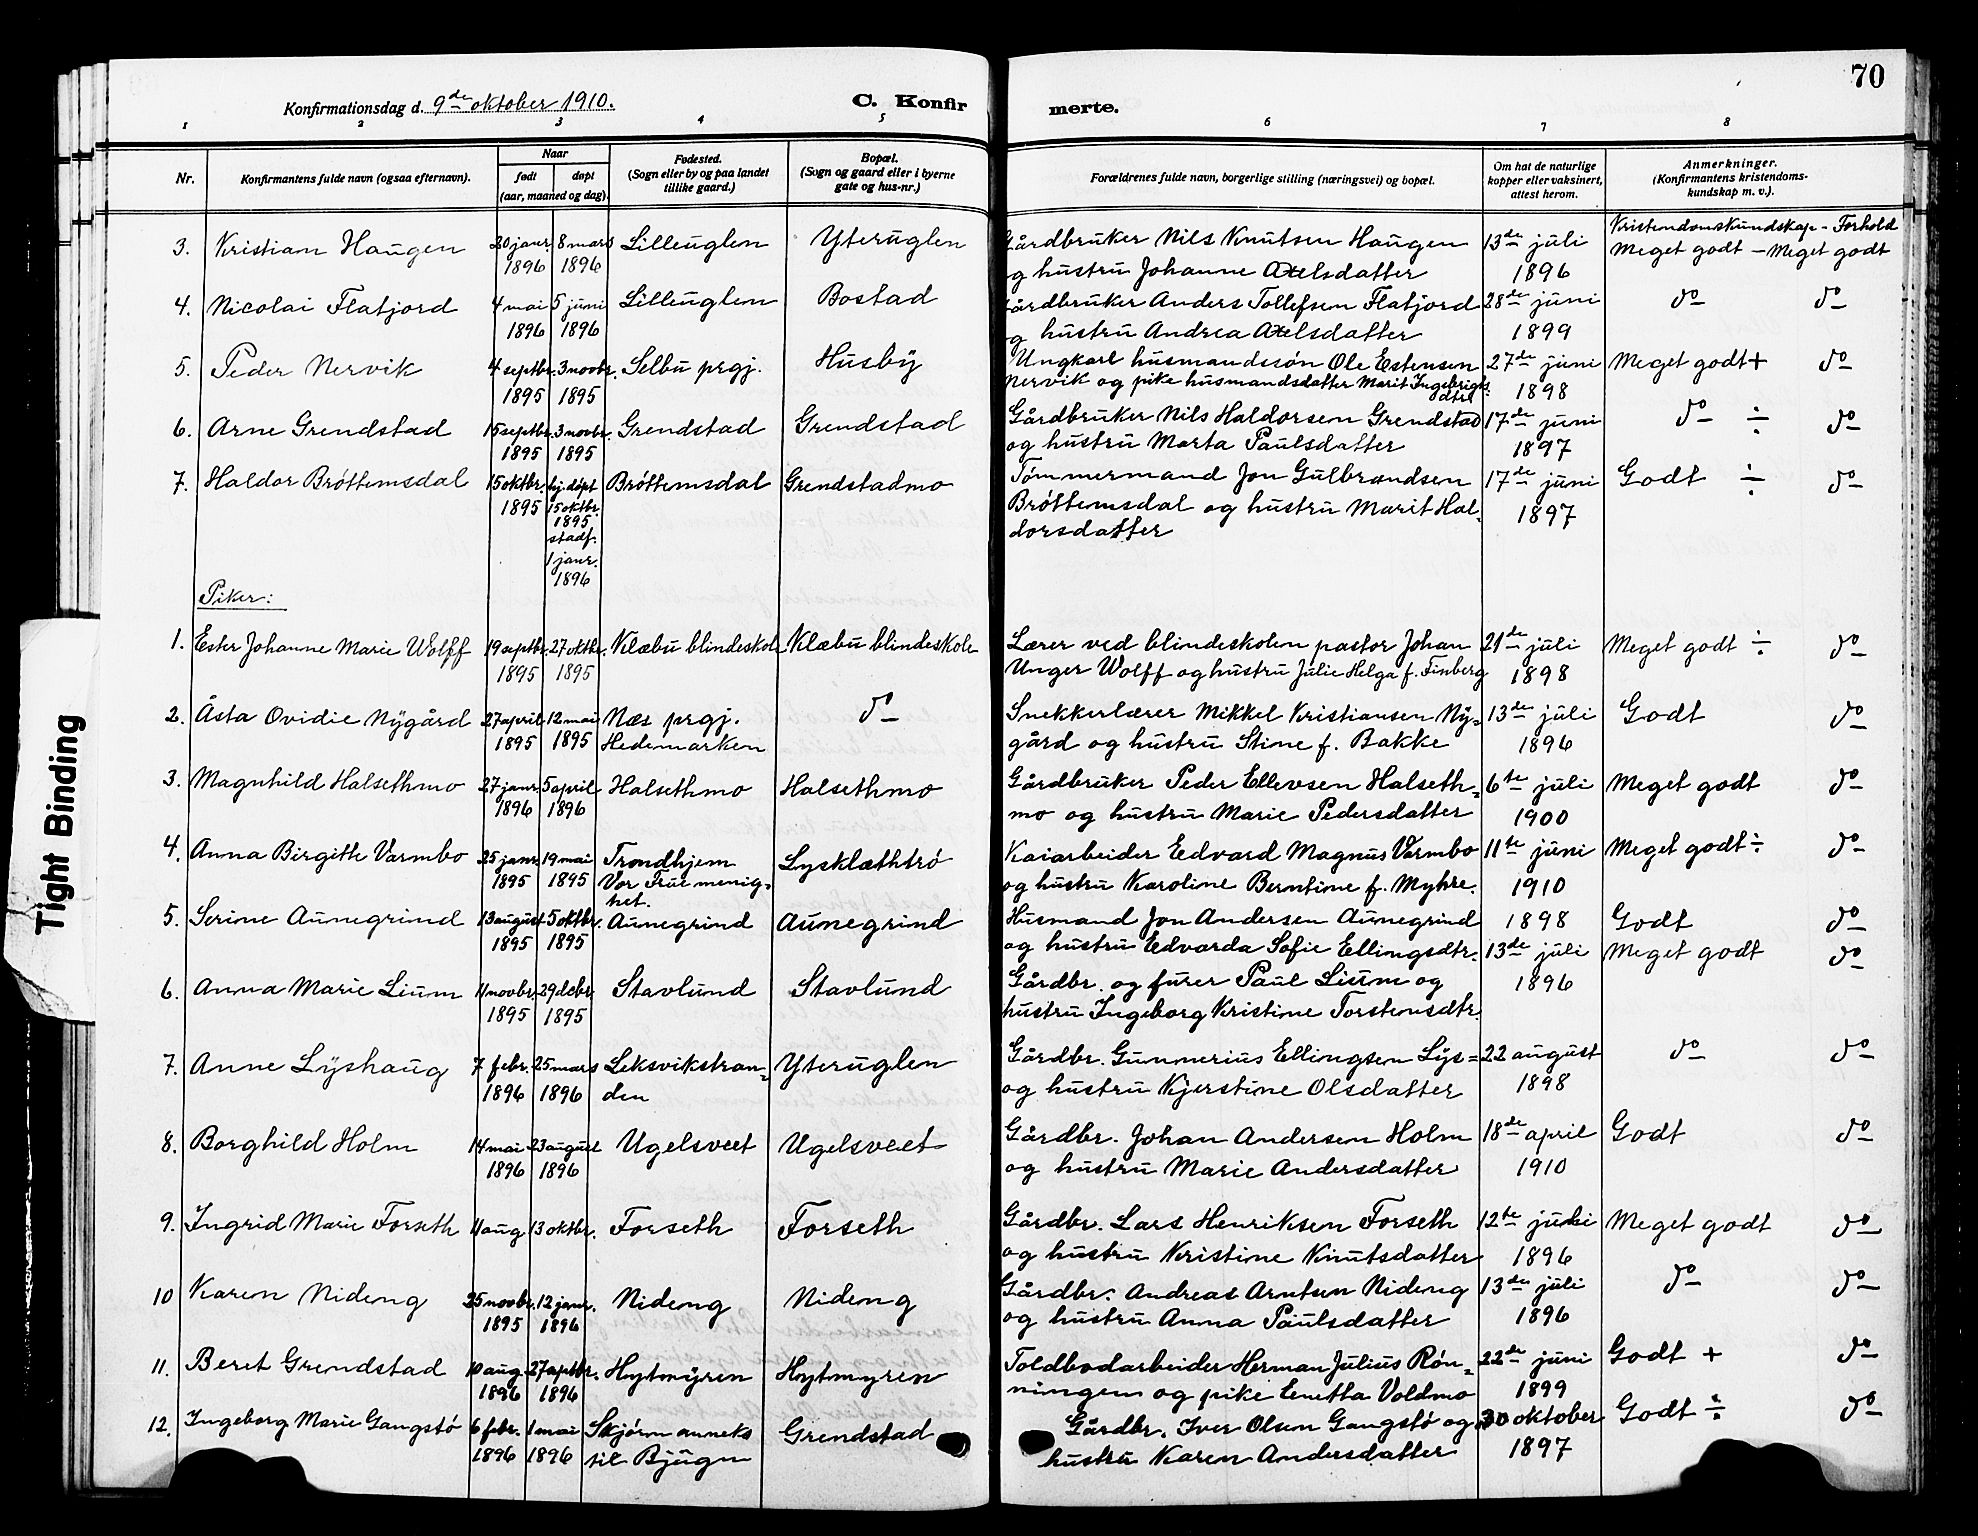 70
Konfirmationsdag d. 9de oktober 1910.
C. Konfir
merte.
1 2 3 4 5 6 7 8
Nr.
Konfirmantens fulde navn (ogsaa efternavn).
Naar
født
døpt
(aar, maaned og dag).
Fødested.
(Sogn eller by og paa landet
tillike gaard.)
Bopæl.
(Sogn og gaard eller i byerne
gate og hus-nr.)
Forældrenes fulde navn, borgerlige stilling (næringsvei) og bopæl.
Om hat de naturlige
kopper eller vaksinert,
attest herom.
Anmerkninger.
(Konfirmantens kristendoms-
kundskap m. v.).
Kristendomskundskap - Forhold
3. Kristian Haugen 20 janr. 8 mars Lilleuglen Yteruglen Gårdbruker Nils Knutsen Haugen 13de juli Meget godt - Meget godt
1896 1896 og hustru Johanne Axelsdatter 1896
4. Nicolai Flatjord 4 mai 5 juni Lilleuglen Bostad Gårdbruker Anders Tollefsen Flatjord 28de juni do do
1896 1896 og hustru Andrea Axelsdatter 1899
5. Peder Nervik 4 septbr. 3 novbr. Selbu prgj. Husby Ungkarl husmandssøn Ole Estensen 27de juni Meget godt + do
1895 1895 Nervik og pike husmandsdatter Marit Ingebrigts- 1898
dtr.
6. Arne Grendstad 15 septbr. 3 novbr. Grendstad Grendstad Gårdbruker Nils Haldorsen Grendstad 17de juni do ÷ do
1895 1895 og hustru Marta Paulsdatter 1897
7. Haldor Brøttemsdal 15 oktbr. hj. døpt Brøttemsdal Grendstadmo Tømmermand Jon Gulbrandsen 17de juni Godt ÷ do
1895 15 oktbr. Brøttemsdal og hustru Marit Hal- 1897
1895 dorsdatter
stadf.
1 janr.
1896
Piker:
1. Ester Johanne Marie Wolff 19 septbr. 27 oktbr. Klæbu blindeskole Klæbu blindeskole Lærer ved blindeskolen pastor Johan 21de juli Meget godt ÷ do
1895 1895 Unger Wolff og hustru Julie Helga f. Finberg 1898
2. Åsta Ovidie Nygård 27 april 12 mai Næs prgj. do Snekkerlærer Mikkel Kristiansen Ny- 13de juli Godt do
1895 1895 Hedemarken gård og hustru Stine f. Bakke 1896
3. Magnhild Halsethmo 27 janr. 5 april Halsethmo Halsethmo Gårdbruker Peder Ellevsen Halseth- 6te juli Meget godt do
1896 1896 mo og hustru Marie Pedersdatter 1900
4. Anna Birgitte Varmbo 25 janr. 19 mai Trondhjem Lysklæthtrø Kaiarbeider Edvard Magnus Varmbo 11te juni Meget godt ÷ do
1895 1895 Vor Frue menig- og hustru Karoline Berntine f. Myhre. 1910
het.
5. Serine Aunegrind 13 august 5 oktbr. Aunegrind Aunegrind Husmand Jon Andersen Aunegrind 1898 Godt do
1895 1895 og hustru Edvarda Sofie Ellingsdtr. 13de juli Meget godt do
6. Anna Marie Lium 11 novbr. 29 decbr. Stavlund Stavlund Gårdbr. og furer Paul Lium og 1896
1895 1895 hustru Ingeborg Kristine Torstensdtr.
7. Anne Lyshaug 7 febr. 25 mars Leksvikstran- Yteruglen Gårdbr. Gunnerius Ellingsen Lys- 22 august do do
1896 1896 den og hustru Kjerstine Olsdatter 1898
8. Borghild Holm 14 mai 23 august Ugelsveet Ugelsveet Gårdbr. Johan Andersen Holm 18de april Godt do
1896 1896 og hustru Marie Andersdatter 1910
9. Ingrid Marie Forseth 11 aug 13 oktbr. Forseth Forseth Gårdbr. Lars Henriksen Forseth 12te juni Meget godt do
og hustru Kristine Knutsdatter 1896
10 Karen Nideng 25 novbr. 12 janr. Nideng Nideng Gårdbr. Andreas Arntsen Nideng 13de juli do do
1895 1896 og hustru Anna Paulsdatter 1896
11. Beret Grendstad 10 aug. 27 septbr. Høytmyren Høytmyren Toldbodarbeider Herman Julius Røn- 22de juni Godt + do
1896 1896 ningen og pike Enetta Voldmo 1899
12. Ingeborg Marie Gangstø 6 febr. 1 mai Skjørn anneks Grendstad Gårdbr. Iver Olsen Gangstø og 30 oktober Godt ÷ do
1896 1896 til Bjugn hustru Karen Andersdatter 1897
Tight Binding